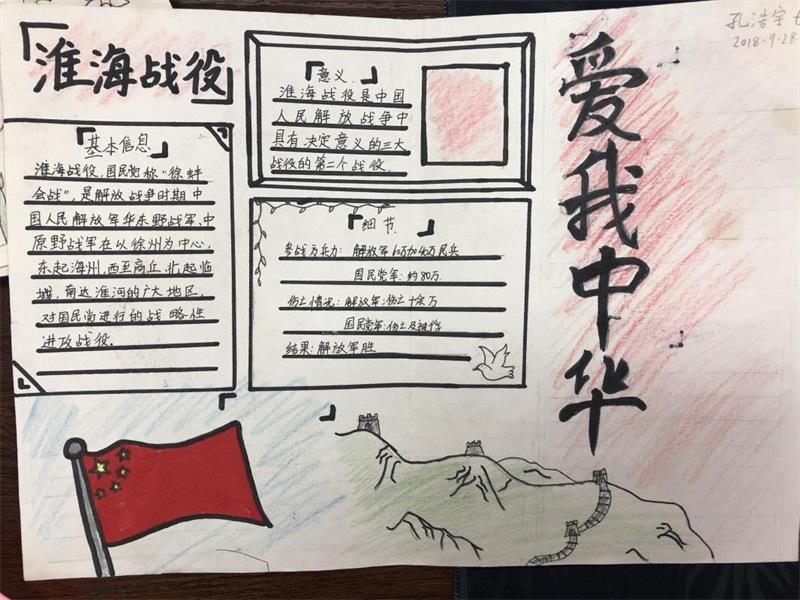 『淮海战役』
孔浩宇
2018.9.28
爱我中华
『基本信息』
淮海战役,国民党称"徐蚌
会战",是解放战争时期中
国人民解放军华东野战军、中
原野战军在以徐州为中心,
东起海州,西至商丘,北起临
城,南达淮河的广大地区,
对国民党进行的战略性
进攻战役。
『意义』
淮海战役是中国
人民解放战争中
具有决定意义的三大
战役的第二个战役。
『细节』
参战方兵力:解放军60万加40万民兵
国民党军:约80万
伤亡情况:解放军:伤亡十余万
国民党军:伤亡及被俘
结果:解放军胜